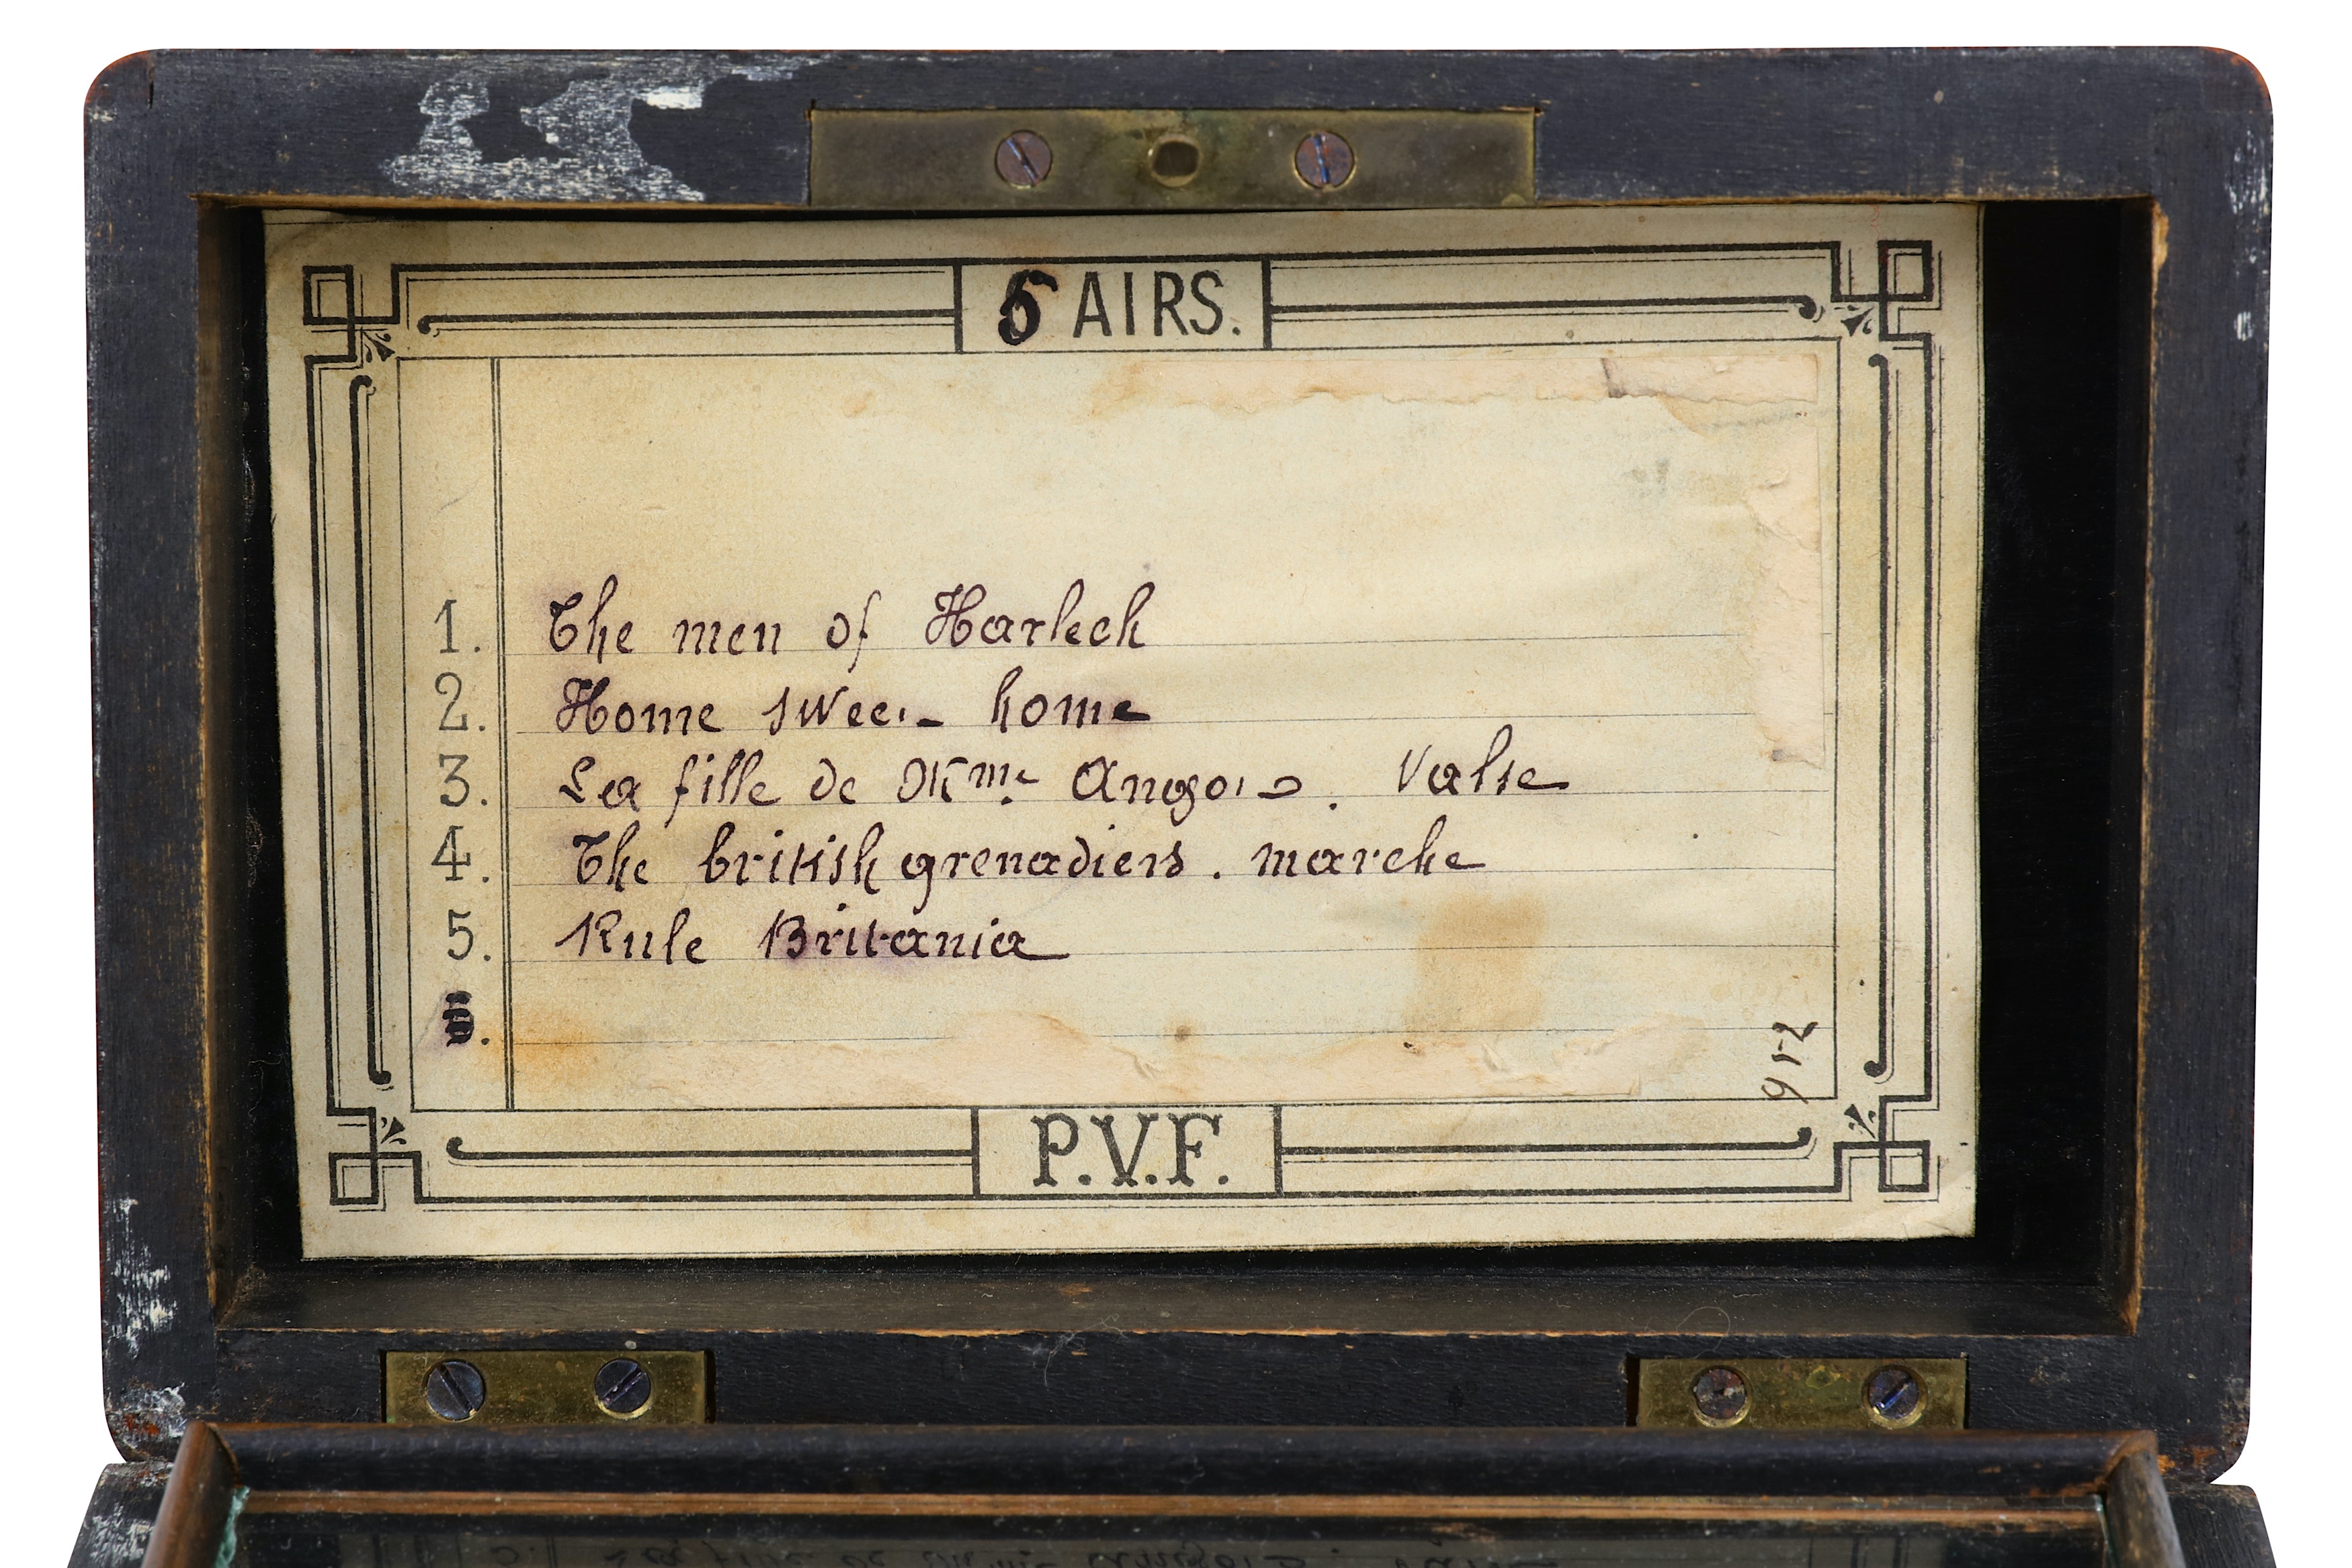 5 AIRS.
1. The men of Harlech
2. Home sweet home
3. La fille de Mme Angot. Valse
4. The british grenadiers. marche
5. Rule Britania
912
P.V.F.